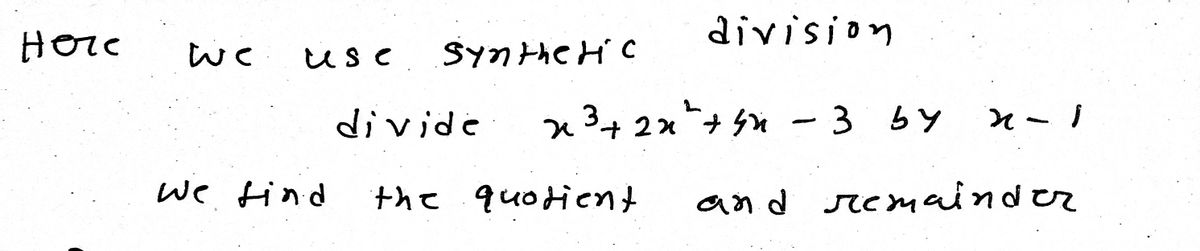 Here we use synthetic division
divide x³+ 2x²+ 5x - 3 by x - 1
we find the quotient and remainder